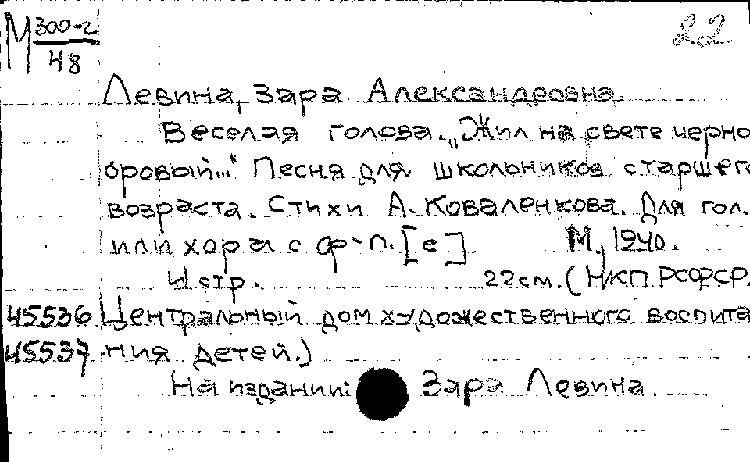 М 300-г 22
48
Левина, Зара Александровна
Веселая голова. „Жил на свете черно
бровый..." Песня для школьников старшег
возраста. Стихи А. Коваленкова. Для гол.
или хора с ф-п. [e] М., 1940.
4 стр. 22 см. (НКП РСФСР.
45536 Центральный дом художественного воспита
45537 ния детей.)
На издании: Зара Левина